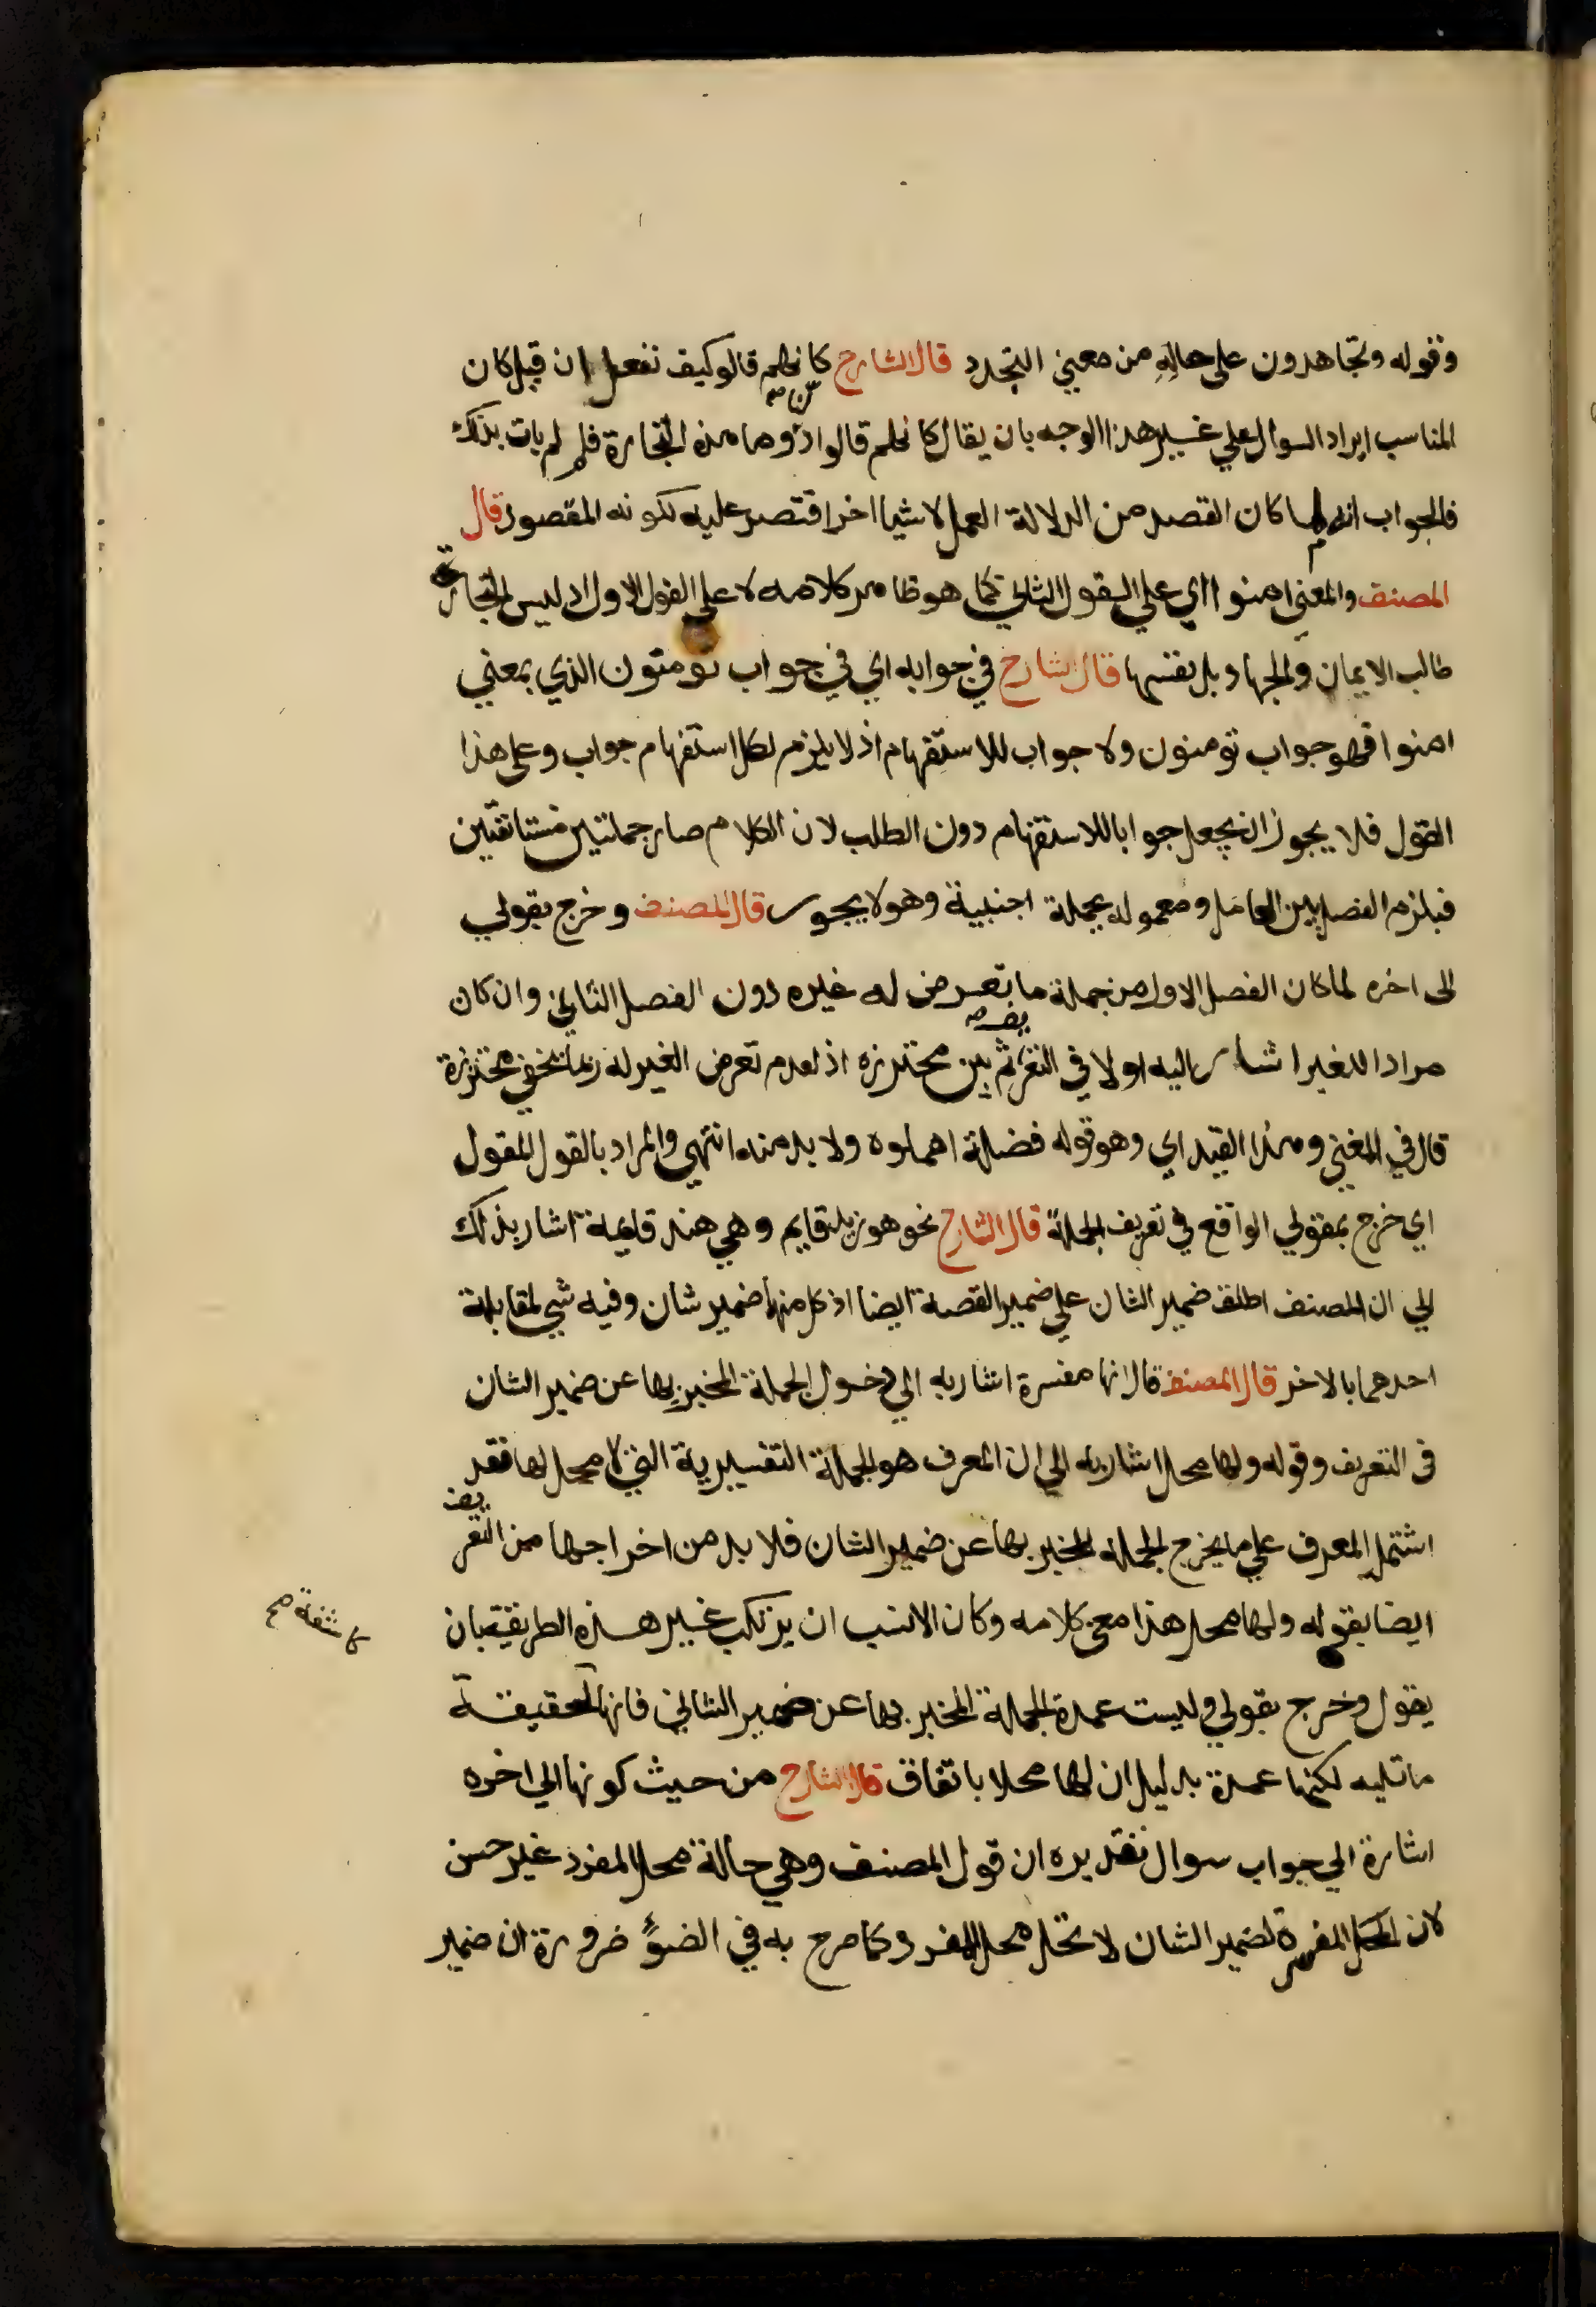 وقوله وتجاهدون على حاله من معني التجدد قال الشارح كانهم قالو كيف نفعل ان قيل كان
المناسب ايراد السوال علي غير هذا الوجه بان يقال كانهم قالوا وما هذه التجارة فلم لم يات بذلك
فالجواب انه لما كان القصد من الدلالة العمل لا شيا اخر اقتصر عليه لكونه المقصود قال
المصنف والمعني امنوا اي علي القول الثاني كما هو ظاهر كلامه لا على القول الاول اذ ليس التجارة
طالب الايمان والجهاد بل نفسها قال الشارح في جوابه اي في جواب تومنون الذي بمعني
امنوا فهو جواب تومنون ولا جواب للاستفهام اذ لا يلزم لكل استفهام جواب وعلى هذا
القول فلا يجوز ان يجعل جوابا للاستفهام دون الطلب لان الكلام صار جملتين مستانفتين
فيلزم الفصل بين العامل ومعموله بجملة اجنبية وهو لا يجوز قال المصنف وخرج بقولي
الى اخره لما كان الفصل الاول من جملة ما تعرض له غيره دون الفصل الثاني وان كان
مرادا للغير اشار اليه اولا في التعريف ثم بين محترزه اذ لعدم تعرض الغير له ربما يخفي محترزة
قال في المغني وهذا القيد اي وهو قوله فضلة اهملوه ولا بد منه انتهي والمراد بالقول المقول
اي خرج بمقولي الواقع في تعريف الجملة قال الشارح نحو هو زيد قايم وهي هند قايمة اشار بذلك
الي ان المصنف اطلق ضمير الشان علي ضمير القصة ايضا اذ كل منهما ضمير شان وفيه شي لمقابلة
احدهما بالاخر قال المصنف قال انها مفسرة اشار به الي دخول الجملة المخبر بها عن ضمير الشان
في التعريف وقوله ولها محل اشار به الي ان المعرف هو الجملة التفسيرية التي لا محل لها فقد
اشتمل المعرف علي ما يخرج الجملة المخبر بها عن ضمير الشان فلا بد من اخراجها من التعريف
ايضا بقوله ولها محل هذا معني كلامه وكان الانسب ان يرتكب غير هذه الطريقة بان
كاشفة صح
يقول وخرج بقولي وليست عمدة الجملة المخبر بها عن ضمير الشان فانها لحقيقة
ما تليه لكنها عمدة بدليل ان لها محلا باتفاق قال الشارح من حيث كونها الي اخره
اشارة الي جواب سوال تقديره ان قول المصنف وهي حالة محل المفرد غير حسن
لان الجمل المفسرة لضمير الشان لا تحل محل المفرد كما صرح به في الضوء ضرورة ان ضمير